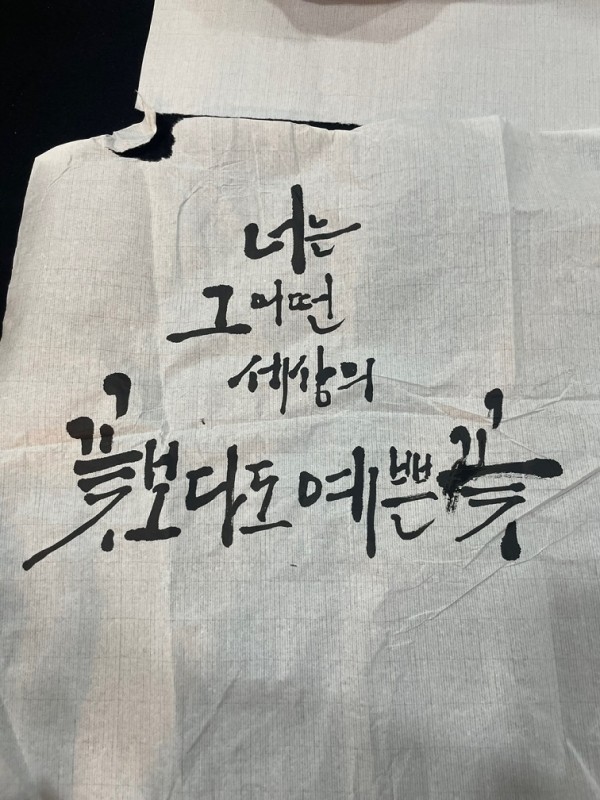 너는
그 어떤
세상의
꽃보다도 예쁜 꽃